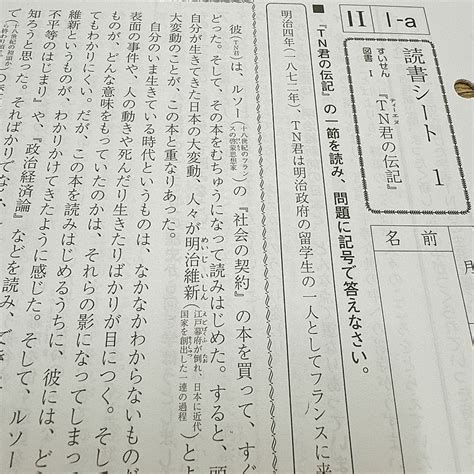 II
1-a
読書シート 1
すいせん図書 I
『TN君の伝記』
ティーエヌ
名前
月
『TN君の伝記』の一節を読み、問題に記号で答えなさい。
明治四年(一八七二年)、TN君は明治政府の留学生の一人としてフランスに来
彼(TN)は、ルソー(十八世紀のフランスの啓蒙思想家)の『社会の契約』の本を買って、すぐ
どった。そして、その本をむちゅうになって読みはじめた。すると、頭
自分が生きてきた日本の大変動、人々が明治維新(江戸幕府が倒れ、日本に近代国家を創出した一連の過程)とよ
大変動のことが、この本と重なりあった。
自分のいま生きている時代というものは、なかなかわからないもの
表面の事件や、人の動きや死んだり生きたりばかりが目につく。そ
ものが、どんな意味をもっていたのかは、それらの影になってしまっ
てもわかりにくい。だが、この本を読みはじめるうちに、彼には、ど
維新というものが、わかりかけてきたように感じた。そして、ルソー
不平等のはじまり』や、『政治経済論』などを読み、
知ろうと思った。そればかりでな